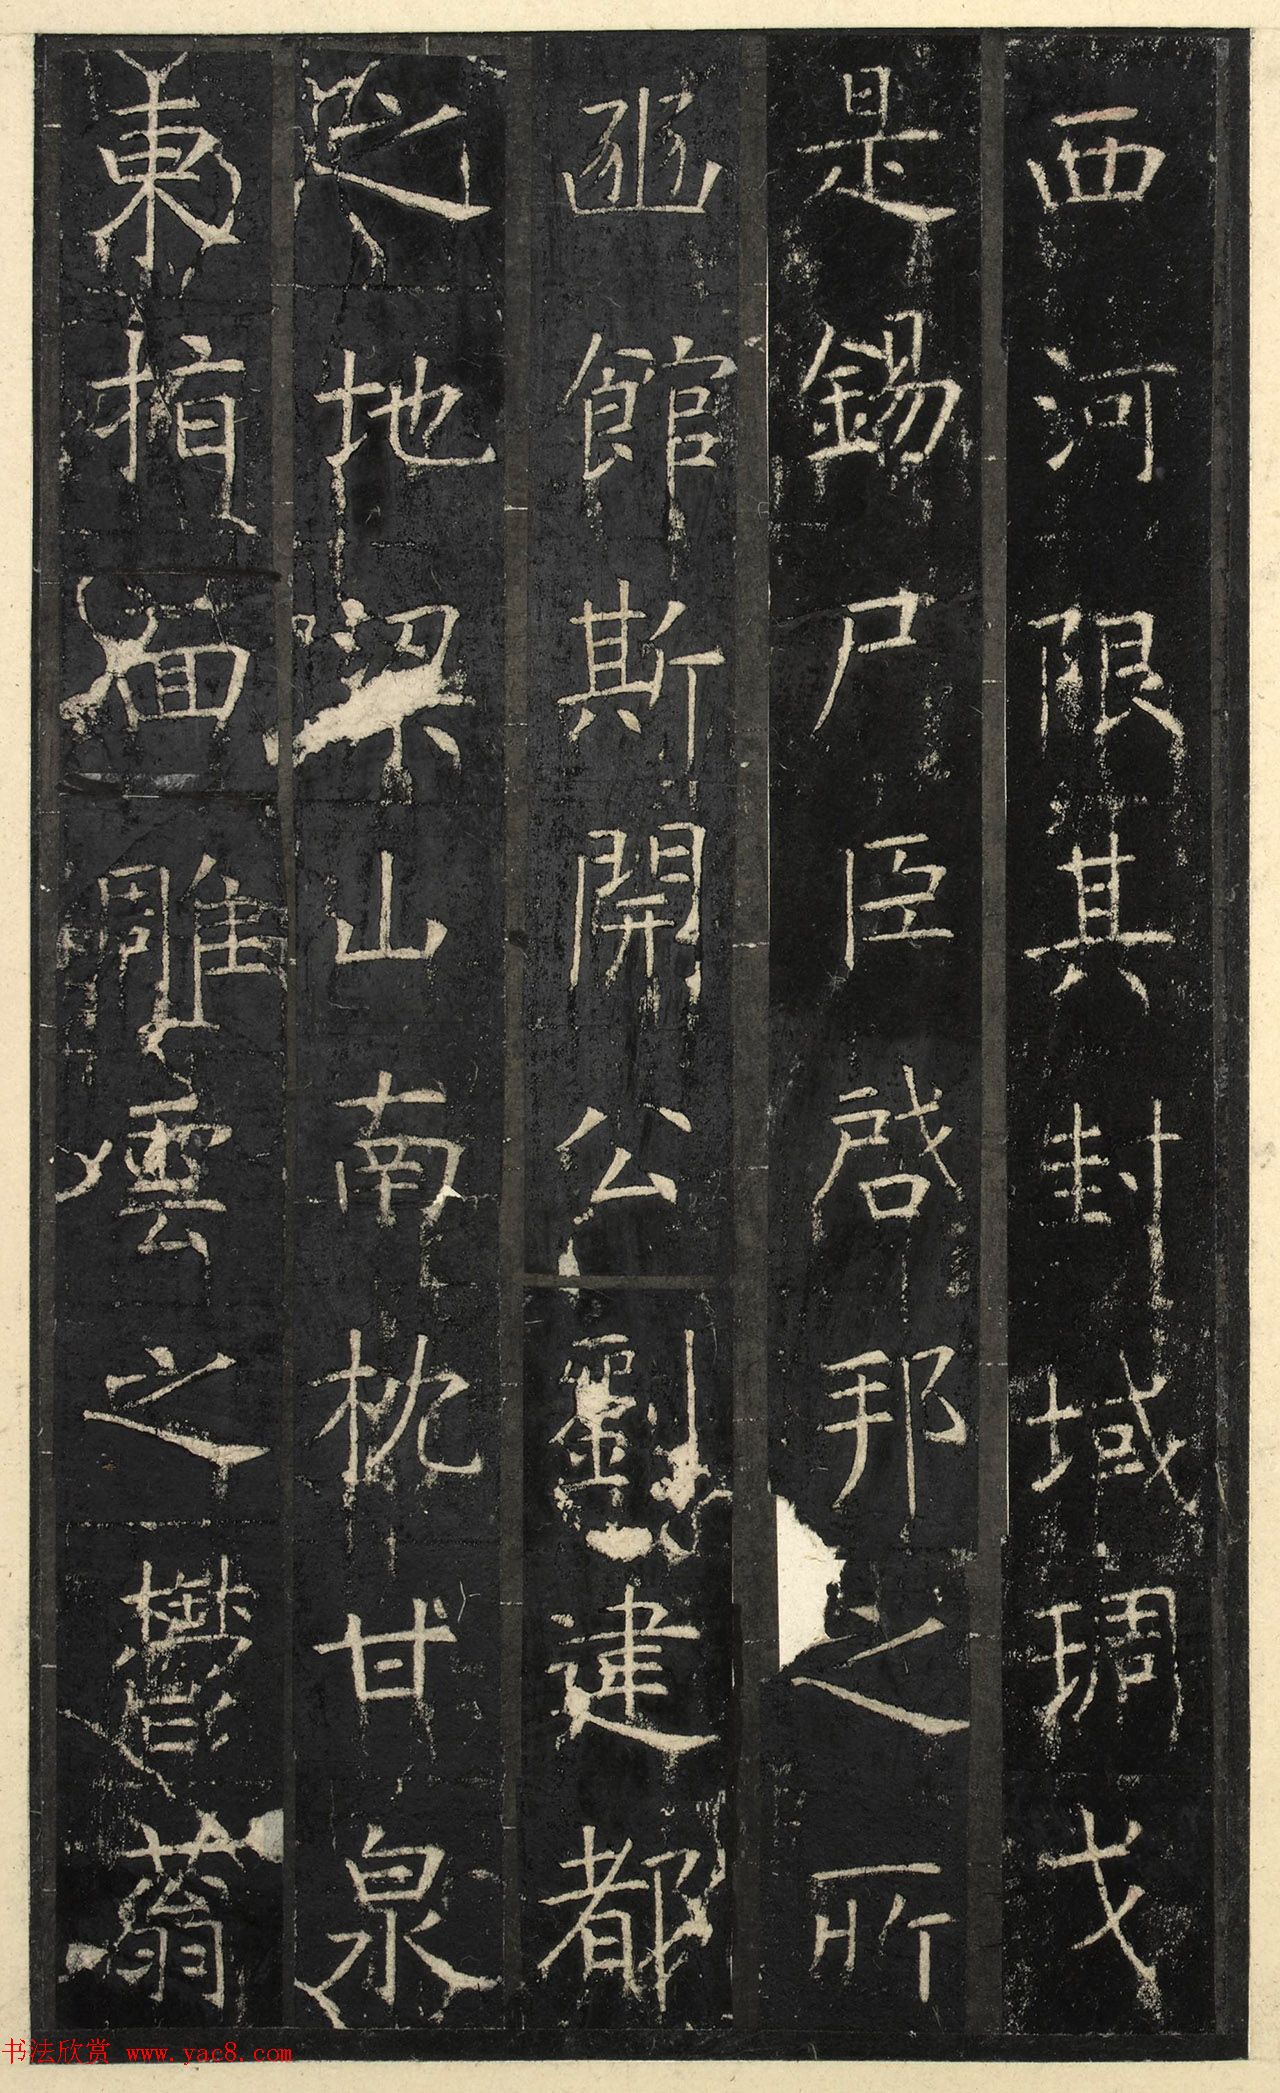 西河限其封域琱戈
是錫尸臣啓邦之所
豳館斯開公劉建都
之地梁山南枕甘泉
東指面雕雲之鬱蓊
书法欣赏 www.yac8.com